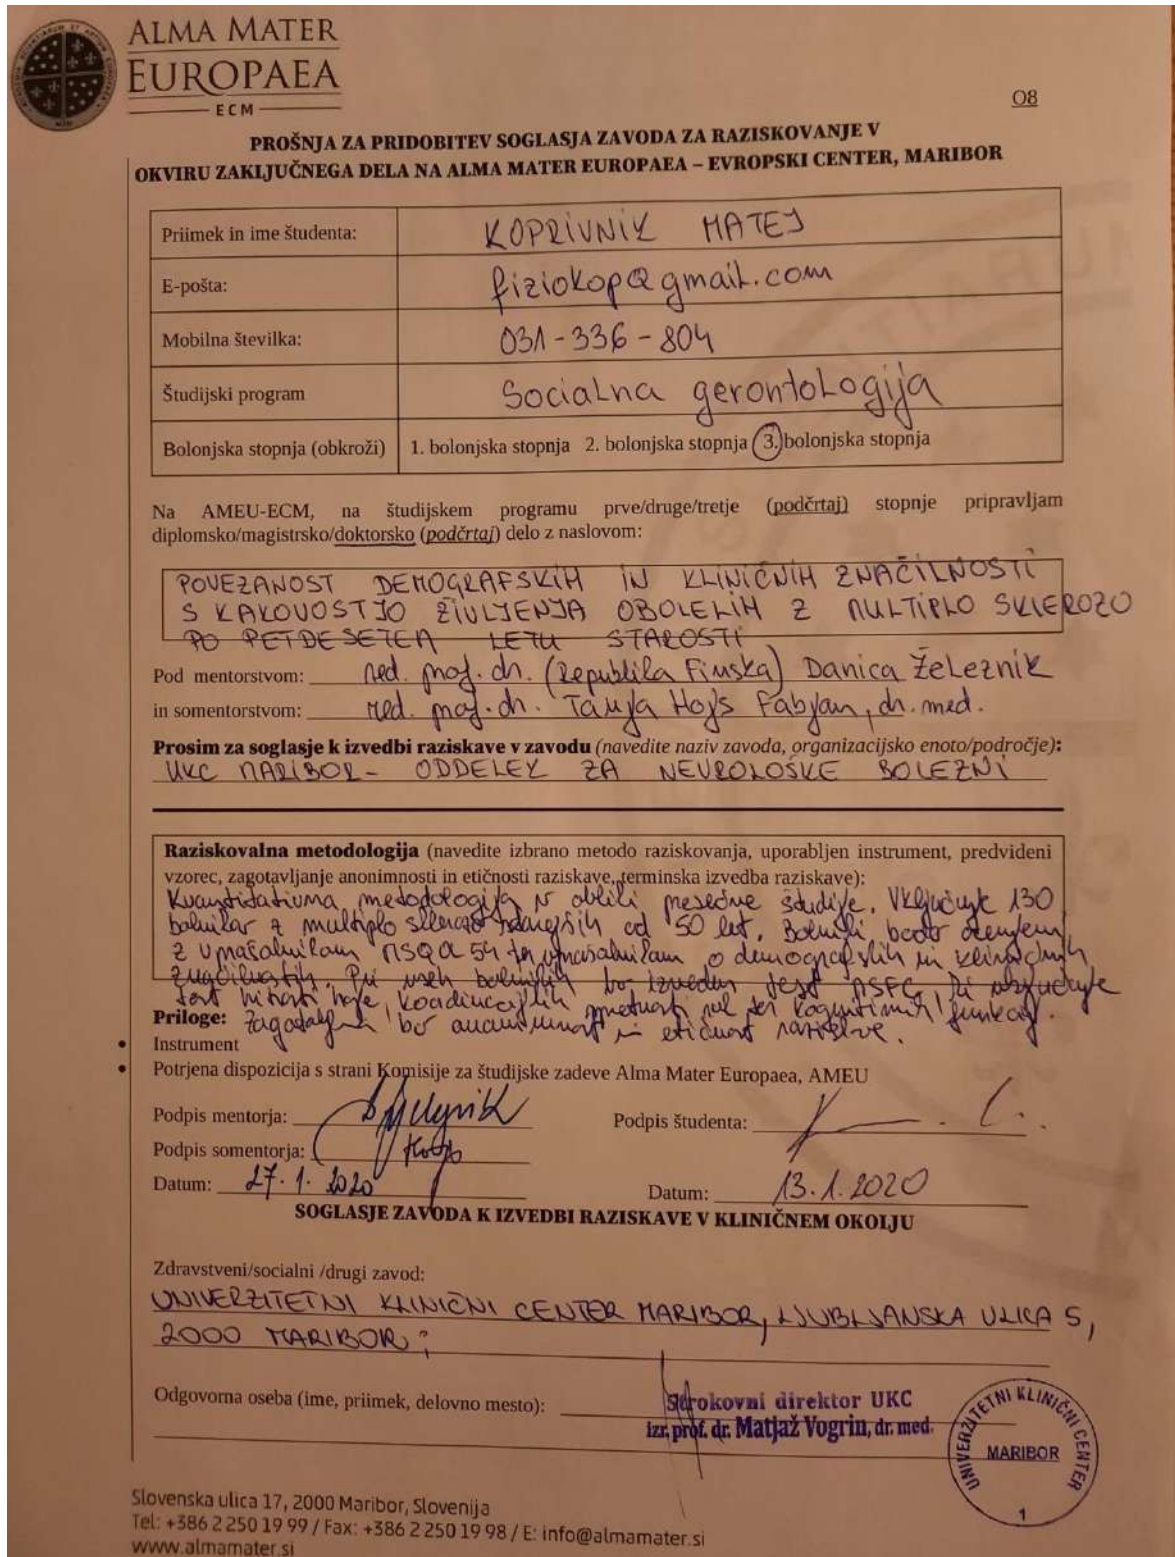 ALMA MATER
EUROPAEA
ECM
O8
PROŠNJA ZA PRIDOBITEV SOGLASJA ZAVODA ZA RAZISKOVANJE V
OKVIRU ZAKLJUČNEGA DELA NA ALMA MATER EUROPAEA – EVROPSKI CENTER, MARIBOR
Priimek in ime študenta: KOPRIVNIK MATEJ
E-pošta: fiziokop@gmail.com
Mobilna številka: 031-336-804
Študijski program Socialna gerontologija
Bolonjska stopnja (obkroži) 1. bolonjska stopnja 2. bolonjska stopnja 3. bolonjska stopnja
Na AMEU-ECM, na študijskem programu prve/druge/tretje (podčrtaj) stopnje pripravljam
diplomsko/magistrsko/doktorsko (podčrtaj) delo z naslovom:
POVEZANOST DEMOGRAFSKIH IN KLINIČNIH ZNAČILNOSTI
S KAKOVOSTJO ŽIVLJENJA OBOLELIH Z MULTIPLO SKLEROZO
PO PETDESETEM LETU STAROSTI
Pod mentorstvom: red. prof. dr. (Republika Finska) Danica Železnik
in somentorstvom: red. prof. dr. Tanja Hojs Fabjan, dr. med.
Prosim za soglasje k izvedbi raziskave v zavodu (navedite naziv zavoda, organizacijsko enoto/področje):
UKC MARIBOR- ODDELEK ZA NEVROLOŠKE BOLEZNI
Raziskovalna metodologija (navedite izbrano metodo raziskovanja, uporabljen instrument, predvideni
vzorec, zagotavljanje anonimnosti in etičnosti raziskave, terminska izvedba raziskave):
metodologija v obliki presečne študije. Vključuje 130
bolnikov z multiplo sklerozo starejših od 50 let. Bolniki bodo ocenjeni
z vprašalnikom MSQOL 54 ter vprašalnikom o demografskih in kliničnih
značilnostih. Pri vseh bolnikih bo izveden test MSFC, ki vključuje
test hitrosti hoje, spretnosti rok ter kognitivnih funkcij.
Priloge: Zagotovljena bo anonimnost in etičnost raziskave.
• Instrument
• Potrjena dispozicija s strani Komisije za študijske zadeve Alma Mater Europaea, AMEU
Podpis mentorja: Podpis študenta:
Podpis somentorja:
Datum: 27.1.2020 Datum: 13.1.2020
SOGLASJE ZAVODA K IZVEDBI RAZISKAVE V KLINIČNEM OKOLJU
Zdravstveni/socialni /drugi zavod:
UNIVERZITETNI KLINIČNI CENTER MARIBOR, LJUBLJANSKA ULICA 5,
2000 MARIBOR;
Odgovorna oseba (ime, priimek, delovno mesto): Strokovni direktor UKC
izr. prof. dr. Matjaž Vogrin, dr. med.
UNIVERZITETNI KLINIČNI CENTER
MARIBOR
1
Slovenska ulica 17, 2000 Maribor, Slovenija
Tel: +386 2 250 19 99 / Fax: +386 2 250 19 98 / E: info@almamater.si
www.almamater.si